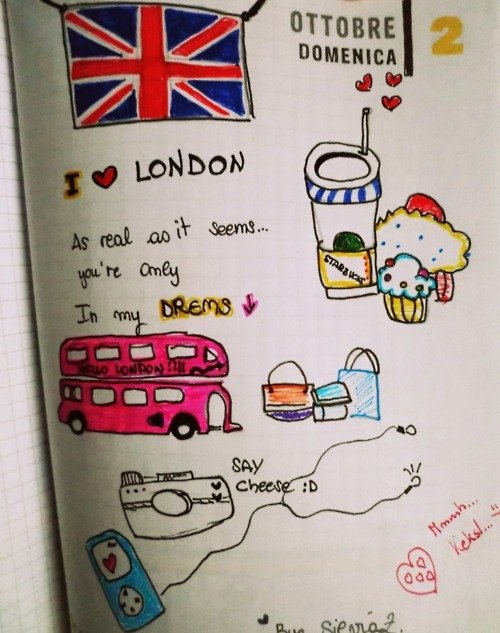 OTTOBRE
DOMENICA
2
I ♥ LONDON
As real as it seems...
you're only
In my DREMS
HELLO LONDON!!!!
STARBUCKS
SAY
Cheese :D
Mmmh...
Keksl...